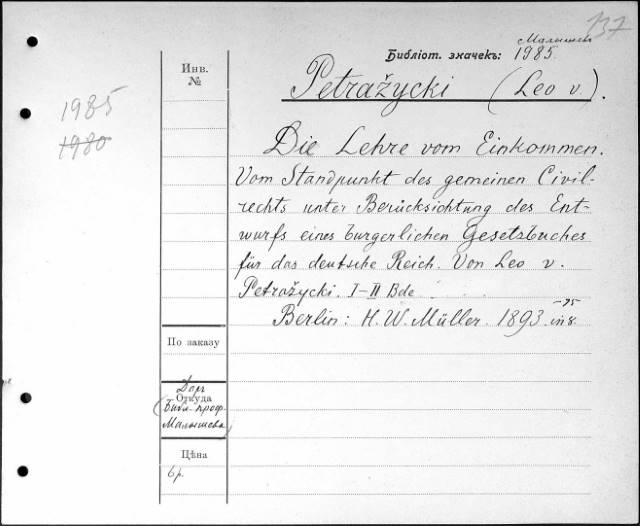 137
Малышев
Библіот. значекъ: 1985.
Инв.
№
Petražycki (Leo v.).
1985
1980
Die Lehre vom Einkommen.
Vom Standpunkt des gemeinen Civil-
rechts unter Berücksichtung des Ent-
wurfs eines burgerlichen Gesetzbuches
für das deutsche Reich. Von Leo v.
Petražycki. I–II Bde
Berlin: H. W. Müller. 1893–95 in 8.
По заказу
Даръ
Откуда
(Библ. проф.
Малышева)
Цѣна
6 р.